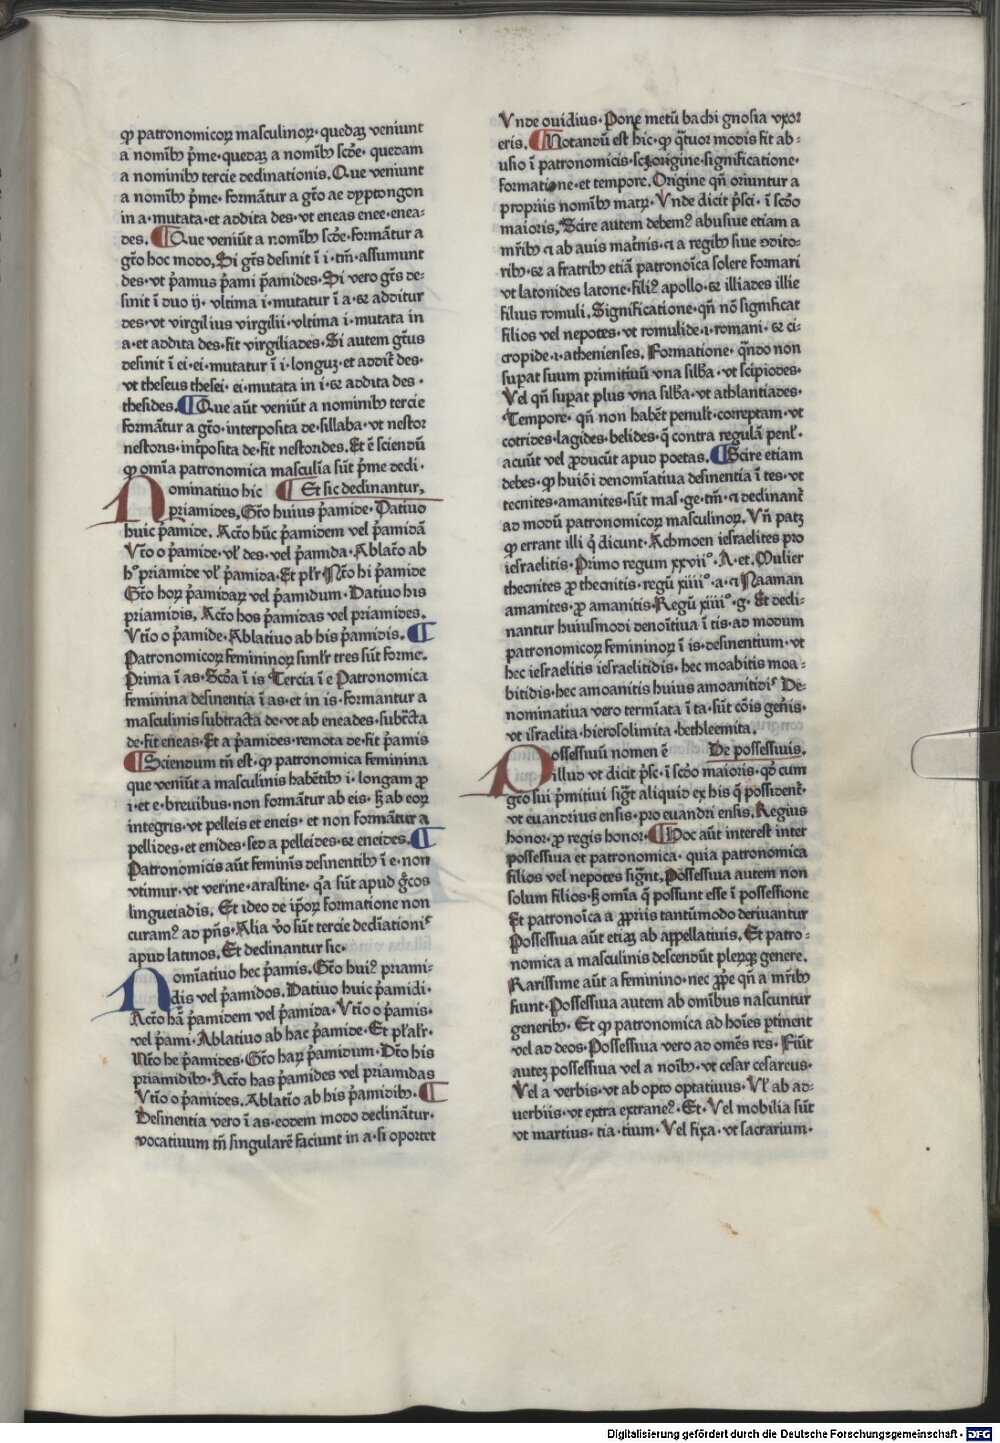 qꝫ patronomicoꝝ masculinoꝝ· quedaꝫ veniunt
a nomībꝰ p̄me· quedaꝫ a nomībꝰ scd̄e· quedam
a nominibꝰ tercie declinationis. Que veniunt
a nomībꝰ p̄me· formātur a gt̄o ae dyptongon
in a· mutata· et addita des· vt eneas enee· enea-
des. ¶ Que veniūt a nomībꝰ scd̄e· formātur a
gt̄o hoc modo. Si gt̄s desinit ī i· tm̄· assumunt
des· vt p̄amus p̄ami p̄amides· Si vero gt̄s de-
sinit ī duo ij· vltima i· mutatur ī a· ⁊ additur
des· vt virgilius virgilii· vltima i· mutata in
a· et addita des· fit virgiliades· Si autem gt̄us
desinit ī ei· ei· mutatur ī i· longuꝫ· et addit̄ des·
vt theseus thesei· ei· mutata in i· ⁊ addita des·
thesides. ¶ Que aūt veniūt a nominibꝰ tercie
formātur a gt̄o· interposita de· sillaba· vt nestor
nestoris· int̄posita de· fit nestorides. Et ē sciendū
qꝫ om̄ia patronomica masculīa sūt p̄me decli·
Nominatiuo hic ¶ Et sic declinantur.
priamides. Gt̄o huius p̄amide· Datiuo
huic p̄amide. Act̄o hūc p̄amidem vel p̄amidā
Vt̄o o p̄amide· vl̄ des· vel p̄amida· Ablat̄o ab
h° priamide vl̄ p̄amida· Et pl̄r· Nt̄o hi p̄amide
Gt̄o hoꝝ p̄amidaꝝ vel p̄amidum· Datiuo his
priamidis. Act̄o hos p̄amidas vel priamides.
Vt̄io o p̄amide· Ablatiuo ab his p̄amidis. ¶
Patronomicoꝝ femininoꝝ siml̄r tres sūt forme.
Prima ī as· Scd̄a ī is Tercia ī e Patronomica
feminina desinentia ī as· et in is· formantur a
masculinis subtracta de· vt ab eneades· subt̄cta
de· fit eneas· Et a p̄amides· remota de· fit p̄amis
¶ Sciendum tn̄ est· qꝫ patronomica feminina
que veniūt a masculinis habētibꝰ i· longam ꝓ
i· et e· breuibus· non formātur ab eis· sꝫ ab eoꝝ
integris· vt pelleis et eneis· et non formātur a
pellides· et enides· sed a pelleides· ⁊ eneides. ¶
Patronomicis aūt feminīs desinentibꝰ ī e· non
vtimur· vt verine· arastine· qꝛa sūt apud gc̄os
lingueiadis. Et ideo de ip̄oꝝ formatione non
curamꝰ ad pn̄s· Alia v̄o sūt tercie declīationiˢ
apud latinos. Et declinantur sic·
Nomīatiuo hec p̄amis. Gt̄o huiꝰ priami-
dis vel p̄amidos. Datiuo huic p̄amidi·
Act̄o hāc p̄amidem vel p̄amida· Vt̄io o p̄amis·
vel p̄ami· Ablatiuo ab hac p̄amide· Et pl̄alr̄·
Nt̄o he p̄amides· Gt̄o haꝝ p̄amidum· Dt̄o his
priamidibꝰ· Act̄o has p̄amides vel priamidas
Vt̄io o p̄amides. Ablat̄io ab his p̄amidibꝰ. ¶
Desinentia vero ī as· eodem modo declinātur·
vocatiuum tn̄ singularē faciunt in a· si oportet
Vnde ouidius· Pone metū bachi gnosia vxor
eris. ¶ Notandū est hic· qꝫ q̄tuor modis fit ab-
usio ī patronomicis· scꝫ origine· significatione·
formatione· et tempore. Origine qn̄ oriuntur a
propriis nomībꝰ matꝝ· Vnde dicit p̄sci· ī scd̄o
maioris. Scire autem debemꝰ abusiue etiam a
mr̄ibꝰ ⁊ ab auis mat̄nis· ⁊ a regibꝰ siue ↄdito-
ribꝰ· ⁊ a fratribꝰ etiā patronoīca solere formari
vt latonides latone· filiꝰ apollo· ⁊ illiades illie
filius romuli. Significatione· qn̄ nō significat
filios vel nepotes· vt romulide· i· romani· ⁊ ci-
cropide· i· athenienses. Formatione· qn̄do non
supat suum primitiuū vna sill̄ba· vt scipiodes·
Vel qn̄ supat plus vna sill̄ba· vt athlantiades·
Tempore· qn̄ non habēt penul̄t· correptam· vt
cotrides· lagides· belides· q̄ contra regulā penl̄·
acuūt vel ꝓducūt apud poetas. ¶ Scire etiam
debes· qꝫ huiōi denomīatiua desinentia ī tes· vt
tecnites· amanites· sūt mas· ge· tm̄· ⁊ declinant̄
ad modū patronomicoꝝ masculinoꝝ. Vn̄ patꝫ
qꝫ errant illi q̄ dicunt· Achmoen iesraelites pro
iesraelitis· Primo regum xxvii°· A· et· Mulier
thecnites ꝓ thecnitis· regū xiiii°· a· ⁊ Naaman
amanites· ꝓ amanitis· Regū xiiii°· g· Et decli-
nantur huiusmodi denoītiua ī tis· ad modum
patronomicoꝝ femininoꝝ ī is· desinentium· vt
hec iesraelitis iesraelitidis· hec moabitis moa-
bitidis· hec amoanitis huius amoanitidiˢ De-
nominatiua vero termīata ī ta· sūt cōis gen̄is·
vt israelita· hierosolimita· bethleemita.
Possessiuū nomen ē De possessiuis.
illud vt dicit p̄sc· ī scd̄o maioris· qd̄ cum
gt̄o sui p̄mitiui sigt̄ aliquid ex his q̄ possident̄·
vt euandrius ensis· pro euandri ensis. Regius
honor· ꝓ regis honor· ¶ Hoc aūt interest inter
possessiua et patronomica· quia patronomica
filios vel nepotes sign̄t. Possessiua autem non
solum filios· sꝫ om̄ia q̄ possunt esse ī possessione
Et patronoīca a ꝓpriis tantūmodo deriuantur
Possessiua aūt etiaꝫ ab appellatiuis. Et patro-
nomica a masculinis descendūt pleꝝqꝫ genere.
Rarissime aūt a feminino· nec ꝓpe qn̄ a mr̄ibꝰ
fiunt· Possessiua autem ab omībus nascuntur
generibꝰ· Et qꝫ patronomica ad hoīes ptinent
vel ad deos· Possessiua vero ad om̄es res· Fiūt
autez possessiua vel a noībꝰ· vt cesar cesareus·
Vel a verbis· vt ab opto optatiuus· Vl̄ ab ad-
uerbiis· vt extra extraneꝰ· Et· Vel mobilia sūt
vt martius· tia· tium· Vel fixa· vt sacrarium·
Digitalisierung gefördert durch die Deutsche Forschungsgemeinschaft - DFG